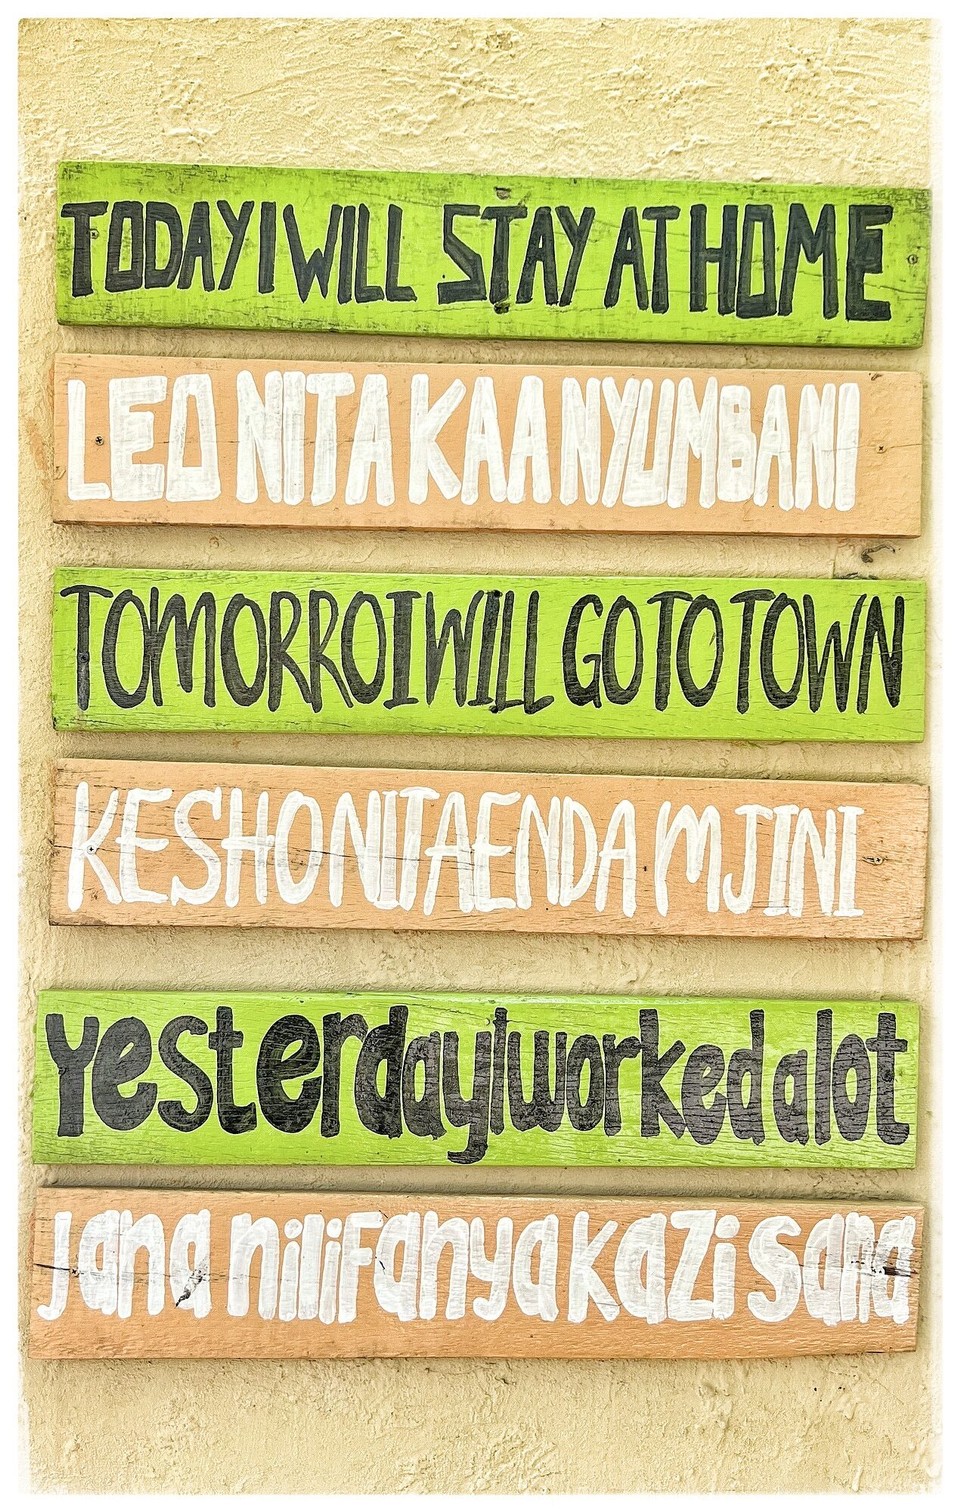 TODAY I WILL STAY AT HOME
LEO NITA KAA NYUMBANI
TOMORRO I WILL GO TO TOWN
KESHO NITAENDA MJINI
Yesterday I worked a lot
Jana nilifanya kazi sana